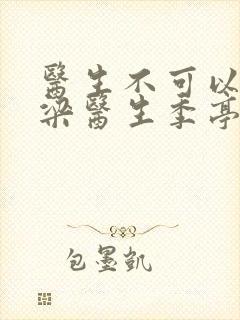 醫生不可以
梁醫生季亭
包墨凱